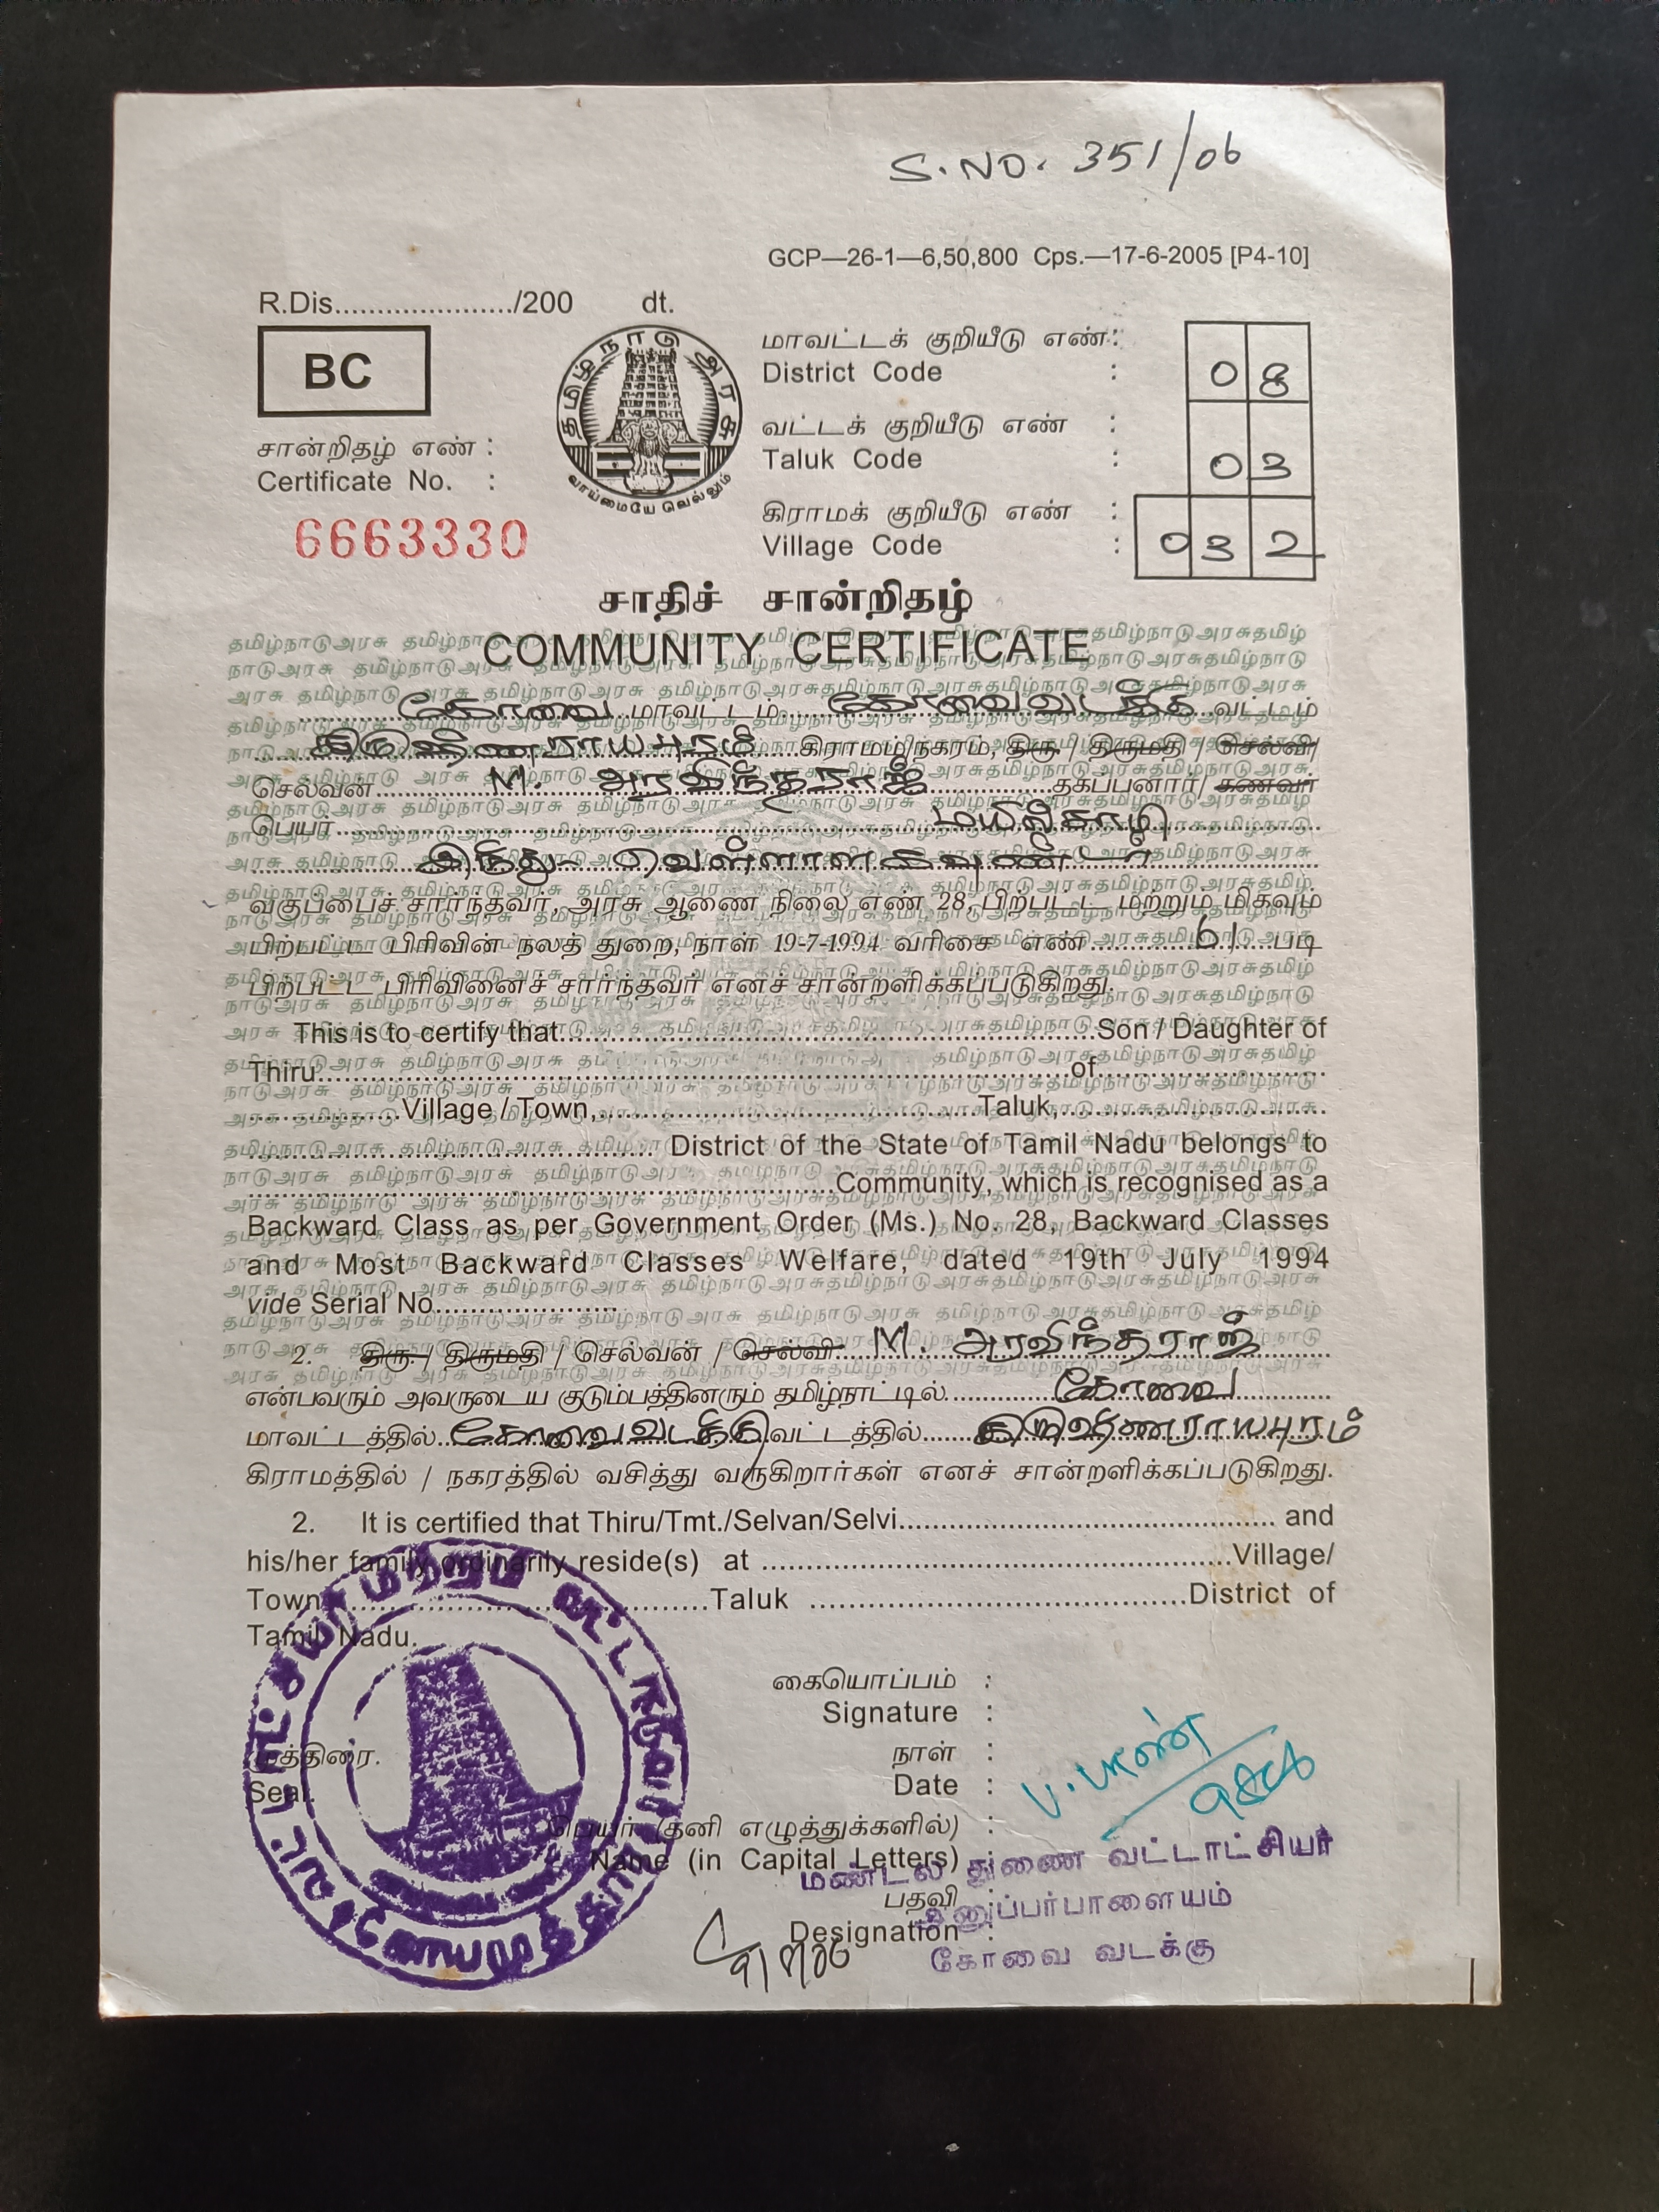 S. NO. 351/06
GCP—26-1—6,50,800 Cps.—17-6-2005 [P4-10]
R.Dis....................../200 dt.
BC
தமிழ்நாடு அரசு
வாய்மையே வெல்லும்
சான்றிதழ் எண் :
Certificate No. :
6663330
மாவட்டக் குறியீடு எண் :
District Code : 08
வட்டக் குறியீடு எண் :
Taluk Code : 03
கிராமக் குறியீடு எண் :
Village Code : 032
சாதிச் சான்றிதழ்
COMMUNITY CERTIFICATE
கோவை மாவட்டம் கோவை வடக்கு வட்டம்
கிருஷ்ணராயபுரம் கிராமம்/நகரம், திரு. / திருமதி / செல்வி/
செல்வன் M. அரவிந்தராஜ் தகப்பனார்/ கணவர்
பெயர்
இந்து - வெள்ளாளகவுண்டர்
வகுப்பைச் சார்ந்தவர், அரசு ஆணை நிலை எண் 28, பிற்பட்ட மற்றும் மிகவும்
பிற்பட்ட பிரிவின் நலத் துறை, நாள் 19-7-1994 வரிசை எண் 61 படி
பிற்பட்ட பிரிவினைச் சார்ந்தவர் எனச் சான்றளிக்கப்படுகிறது.
This is to certify that..........Son / Daughter of
Thiru..........of..........
..........Village / Town,..........Taluk,..........
.......... District of the State of Tamil Nadu belongs to
..........Community, which is recognised as a
Backward Class as per Government Order (Ms.) No. 28, Backward Classes
and Most Backward Classes Welfare, dated 19th July 1994
vide Serial No..........
2. திரு. / திருமதி / செல்வன் / செல்வி. M. அரவிந்தராஜ்
என்பவரும் அவருடைய குடும்பத்தினரும் தமிழ்நாட்டில் கோவை
மாவட்டத்தில் கோவை வடக்கு வட்டத்தில் கிருஷ்ணராயபுரம்
கிராமத்தில் / நகரத்தில் வசித்து வருகிறார்கள் எனச் சான்றளிக்கப்படுகிறது.
2. It is certified that Thiru/Tmt./Selvan/Selvi.......... and
his/her family ordinarily reside(s) at ..........Village/
Town..........Taluk ..........District of
Tamil Nadu.
கையொப்பம் :
Signature :
முத்திரை.
Seal.
நாள் :
Date :
பெயர் (தனி எழுத்துக்களில்) :
Name (in Capital Letters) :
மண்டல துணை வட்டாட்சியர்
பதவி :
அனுப்பர்பாளையம்
Designation :
கோவை வடக்கு